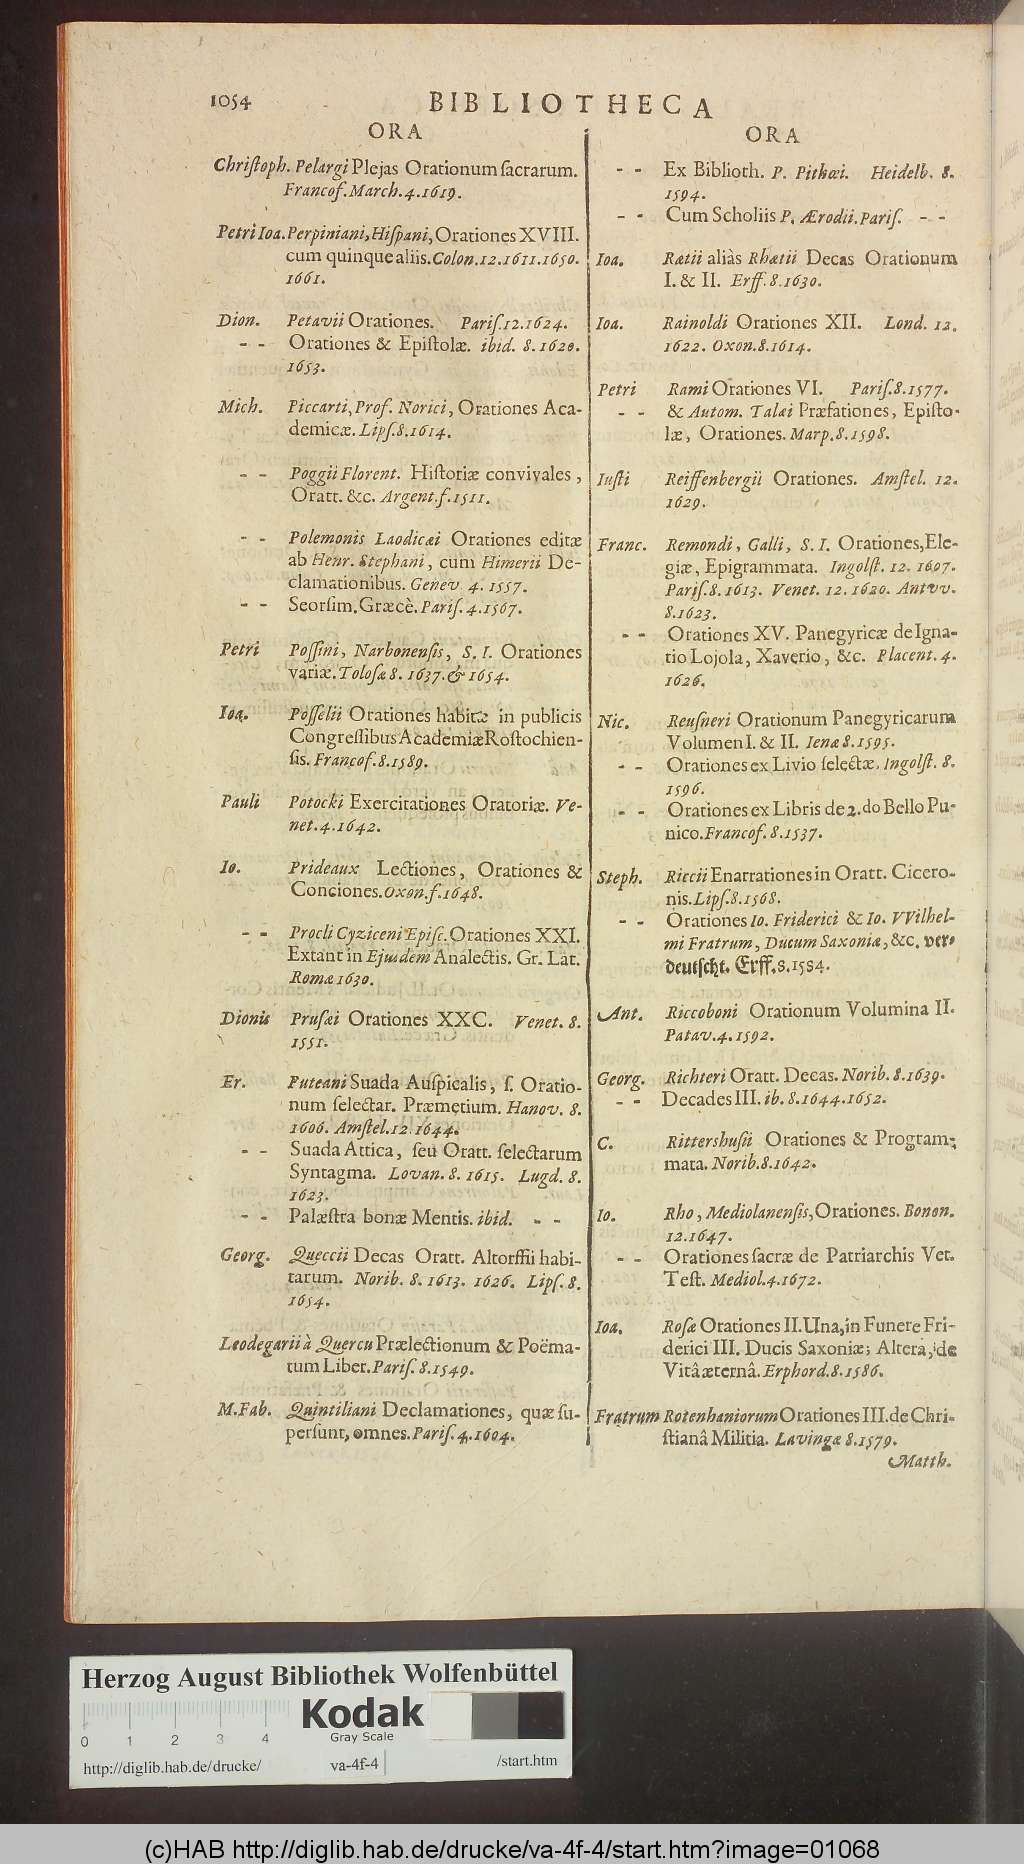 1054 BIBLIOTHECA
ORA
Christoph. Pelargi Plejas Orationum sacrarum.
Francof. March. 4. 1619.
Petri Ioa. Perpiniani, Hispani, Orationes XVIII.
cum quinque aliis. Colon. 12. 1611. 1650.
1661.
Dion. Petavii Orationes. Paris. 12. 1624.
- - Orationes & Epistolæ. ibid. 8. 1620.
1653.
Mich. Piccarti, Prof. Norici, Orationes Aca-
demicæ. Lips. 8. 1614.
- - Poggii Florent. Historiæ convivales,
Oratt. &c. Argent. f. 1511.
- - Polemonis Laodicæi Orationes editæ
ab Henr. Stephani, cum Himerii De-
clamationibus. Genev 4. 1557.
- - Seorsim, Græcè. Paris. 4. 1567.
Petri Possini, Narbonensis, S. I. Orationes
variæ. Tolosæ 8. 1637. & 1654.
Ioa. Posselii Orationes habitæ in publicis
Congressibus Academiæ Rostochien-
sis. Francof. 8. 1589.
Pauli Potocki Exercitationes Oratoriæ. Ve-
net. 4. 1642.
Io. Prideaux Lectiones, Orationes &
Conciones. Oxon. f. 1648.
- - Procli Cyziceni Episc. Orationes XXI.
Extant in Ejusdem Analectis. Gr. Lat.
Romæ 1630.
Dionis Prusæi Orationes XXC. Venet. 8.
1551.
Er. Puteani Suada Auspicalis, s. Oratio-
num selectar. Præmetium. Hanov. 8.
1606. Amstel. 12. 1644.
- - Suada Attica, seu Oratt. selectarum
Syntagma. Lovan. 8. 1615. Lugd. 8.
1623.
- - Palæstra bonæ Mentis. ibid. - -
Georg. Queccii Decas Oratt. Altorffii habi-
tarum. Norib. 8. 1613. 1626. Lips. 8.
1654.
Leodegarii à Quercu Prælectionum & Poëma-
tum Liber. Paris. 8. 1549.
M. Fab. Quintiliani Declamationes, quæ su-
persunt, omnes. Paris. 4. 1604.
ORA
- - Ex Biblioth. P. Pithœi. Heidelb. 8.
1594.
- - Cum Scholiis P. Ærodii. Paris. - -
Ioa. Rætii aliàs Rhætii Decas Orationum
I. & II. Erff. 8. 1630.
Ioa. Rainoldi Orationes XII. Lond. 12.
1622. Oxon. 8. 1614.
Petri Rami Orationes VI. Paris. 8. 1577.
- - & Autom. Talæi Præfationes, Episto-
læ, Orationes. Marp. 8. 1598.
Iusti Reiffenbergii Orationes. Amstel. 12.
1629.
Franc. Remondi, Galli, S. I. Orationes, Ele-
giæ, Epigrammata. Ingolst. 12. 1607.
Paris. 8. 1613. Venet. 12. 1620. Antvv.
8. 1623.
- - Orationes XV. Panegyricæ de Igna-
tio Lojola, Xaverio, &c. Placent. 4.
1626.
Nic. Reusneri Orationum Panegyricarum
Volumen I. & II. Ienæ 8. 1595.
- - Orationes ex Livio selectæ. Ingolst. 8.
1596.
- - Orationes ex Libris de 2. do Bello Pu-
nico. Francof. 8. 1537.
Steph. Riccii Enarrationes in Oratt. Cicero-
nis. Lips. 8. 1568.
- - Orationes Io. Friderici & Io. VVilhel-
mi Fratrum, Ducum Saxoniæ, &c. ver-
deutscht. Erff. 8. 1584.
Ant. Riccoboni Orationum Volumina II.
Patav. 4. 1592.
Georg. Richteri Oratt. Decas. Norib. 8. 1639.
- - Decades III. ib. 8. 1644. 1652.
C. Rittershusii Orationes & Program-
mata. Norib. 8. 1642.
Io. Rho, Mediolanensis, Orationes. Bonon.
12. 1647.
- - Orationes sacræ de Patriarchis Vet.
Test. Mediol. 4. 1672.
Ioa. Rosæ Orationes II. Una, in Funere Fri-
derici III. Ducis Saxoniæ; Altera, de
Vitâ æternâ. Erphord. 8. 1586.
Fratrum Rotenhaniorum Orationes III. de Chri-
stianâ Militia. Lavingæ 8. 1579.
Matth.
Herzog August Bibliothek Wolfenbüttel
Kodak
Gray Scale
0 1 2 3 4
http://diglib.hab.de/drucke/ va-4f-4 /start.htm
(c)HAB http://diglib.hab.de/drucke/va-4f-4/start.htm?image=01068